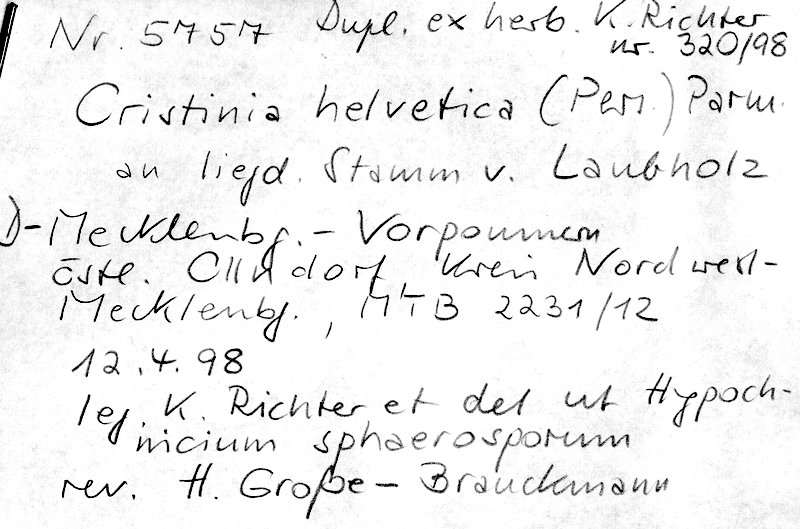 Nr. 5757 Dupl. ex herb. K. Richter
nr. 320/98
Cristinia helvetica (Pers.) Parm.
an liegd. Stamm v. Laubholz
D-Mecklenbg.-Vorpommern
östl. Ollndorf Kreis Nordwest-
Mecklenbg., MTB 2231/12
12.4.98
leg. K. Richter et det ut Hypoch-
nicium sphaerosporum
rev. H. Große-Brauckmann